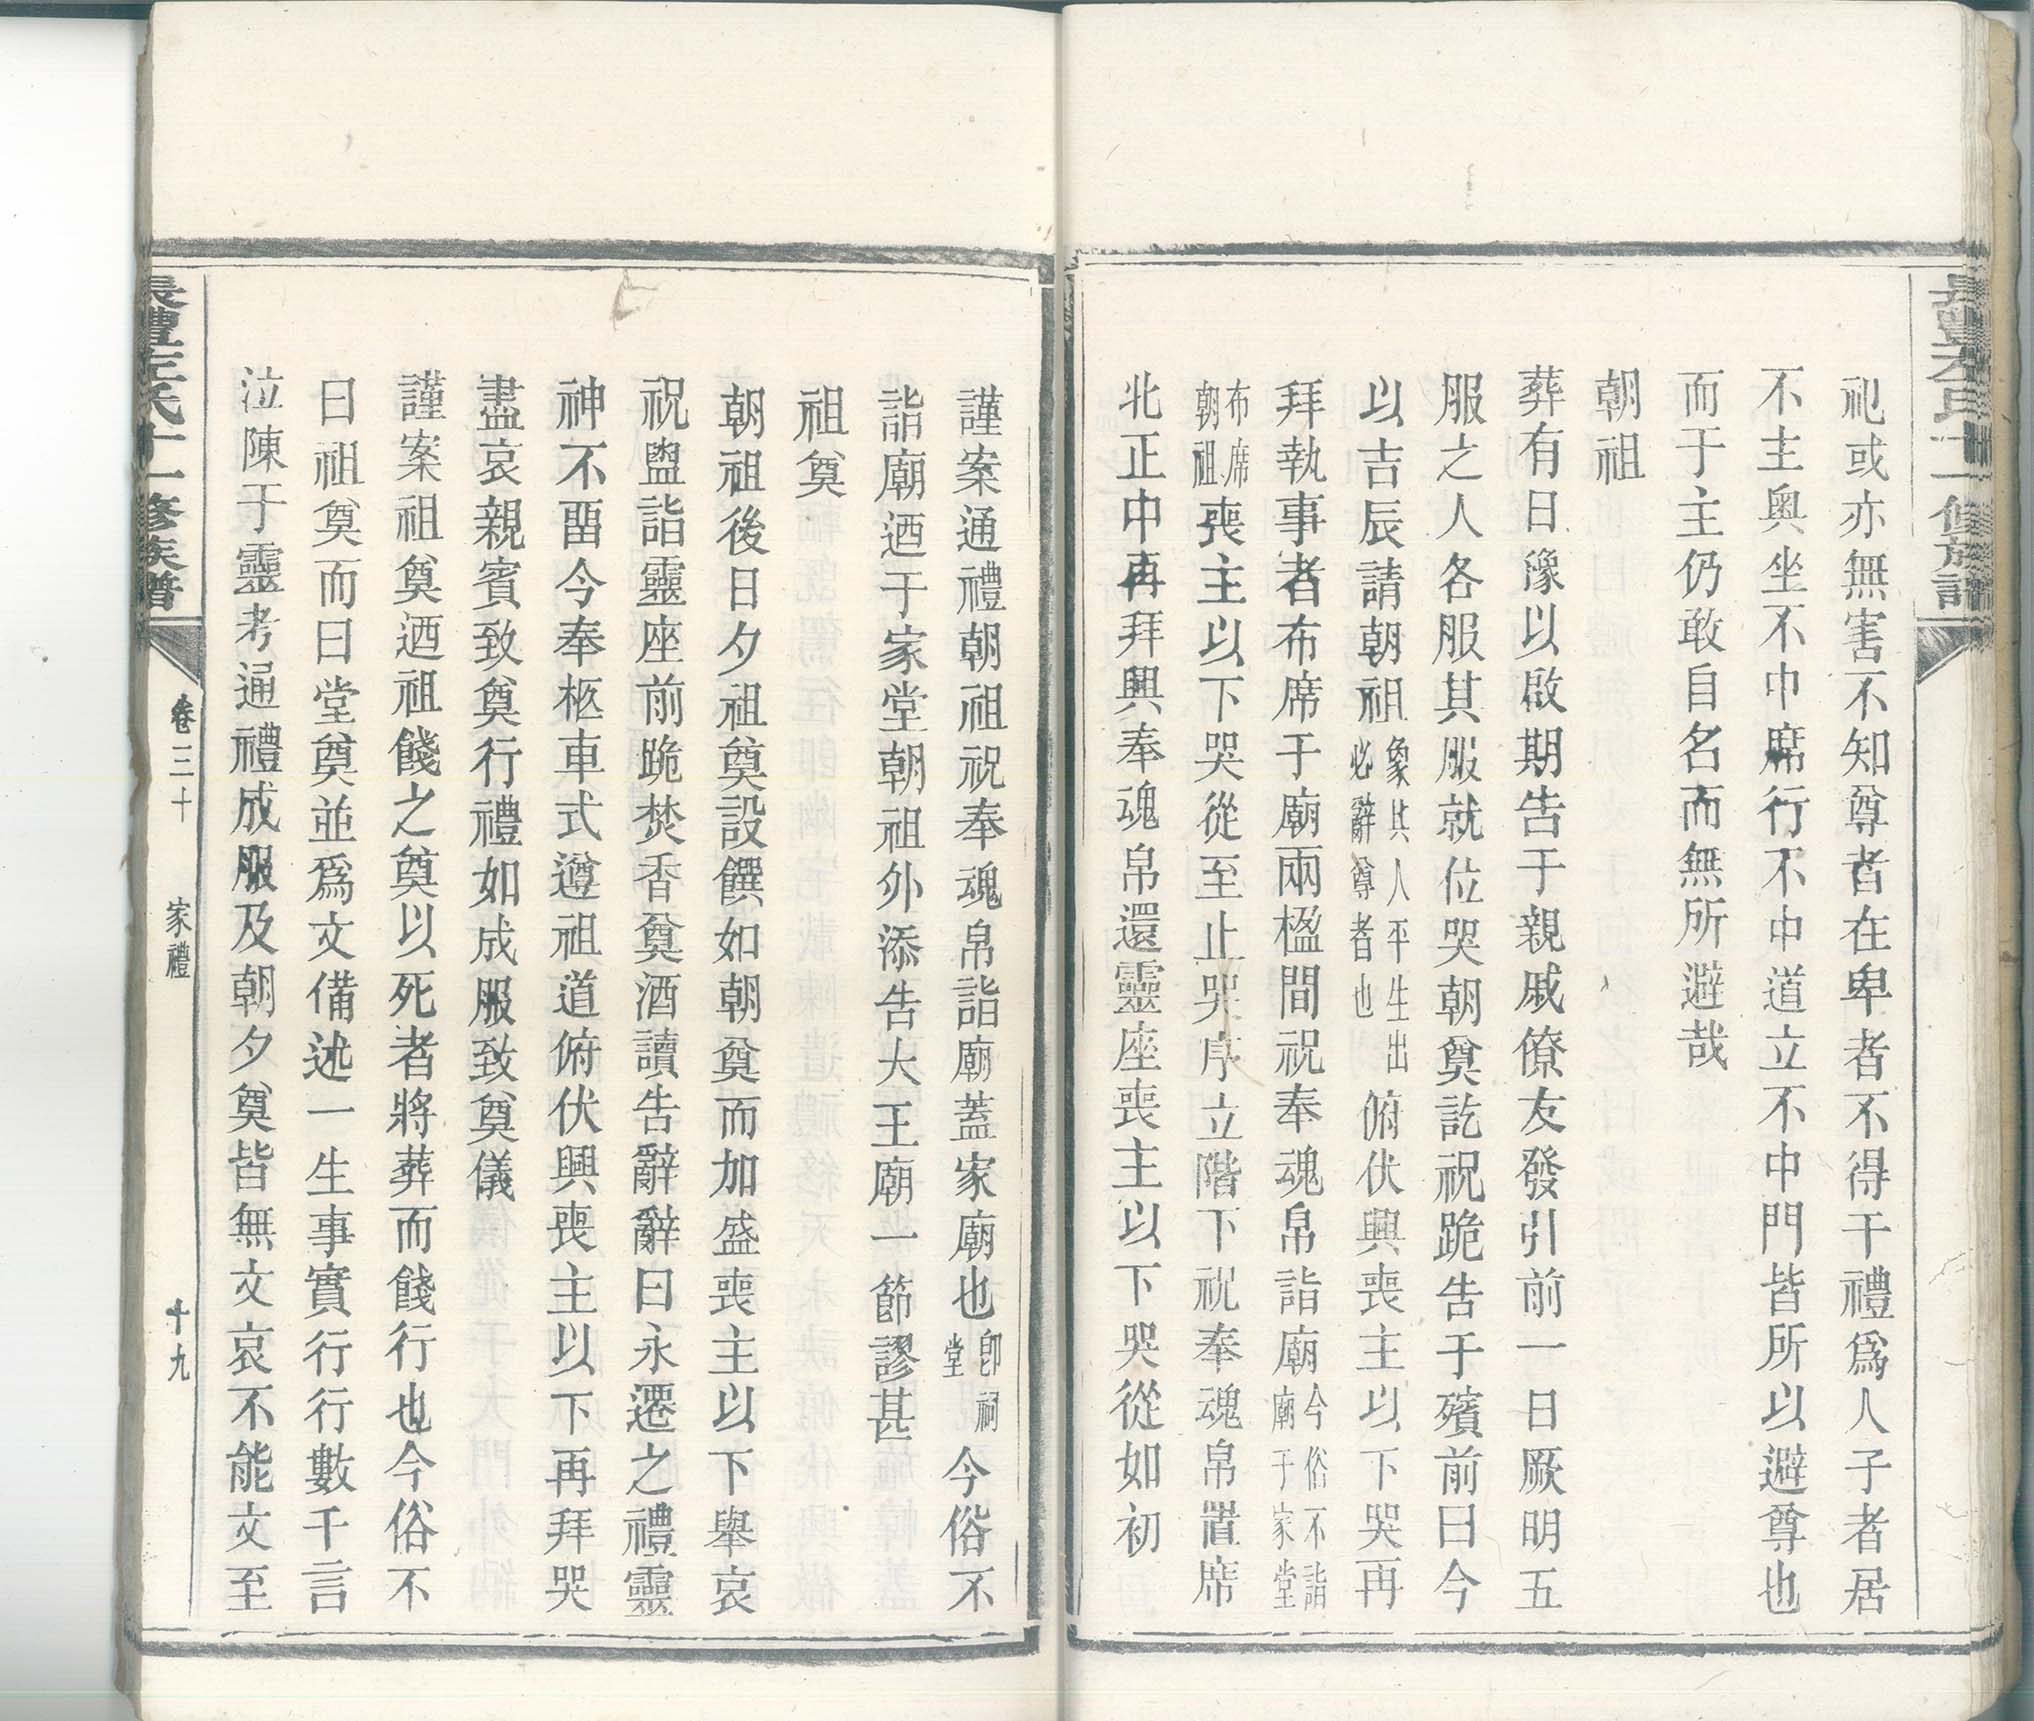 祀或亦無害不知尊者在卑者不得干禮爲人子者居
不主奥坐不中席行不中道立不中門皆所以避尊也
而于主仍敢自名而無所避哉
朝祖
葬有日豫以啟期告于親戚僚友發引前一日厥明五
服之人各服其服就位哭朝奠訖祝跪告于殯前曰今
以吉辰請朝祖象其人平生出必辭尊者也俯伏興喪主以下哭再
拜執事者布席于廟兩楹間祝奉魂帛詣廟今俗不詣廟于家堂
布席朝祖喪主以下哭從至止哭序立階下祝奉魂帛置席
北正中再拜興奉魂帛還靈座喪主以下哭從如初
謹案通禮朝祖祝奉魂帛詣廟蓋家廟也卽祠堂今俗不
詣廟迺于家堂朝祖外添告大王廟一節謬甚
祖奠
朝祖後日夕祖奠設饌如朝奠而加盛喪主以下舉哀
祝盥詣靈座前跪焚香奠酒讀告辭辭曰永遷之禮靈
神不畱今奉柩車式遵祖道俯伏興喪主以下再拜哭
盡哀親賓致奠行禮如成服致奠儀
謹案祖奠迺祖餞之奠以死者將葬而餞行也今俗不
曰祖奠而曰堂奠並爲文備述一生事實行行數千言
泣陳于靈考通禮成服及朝夕奠皆無文哀不能文至
氏十一修族譜
卷三十
家禮
十九